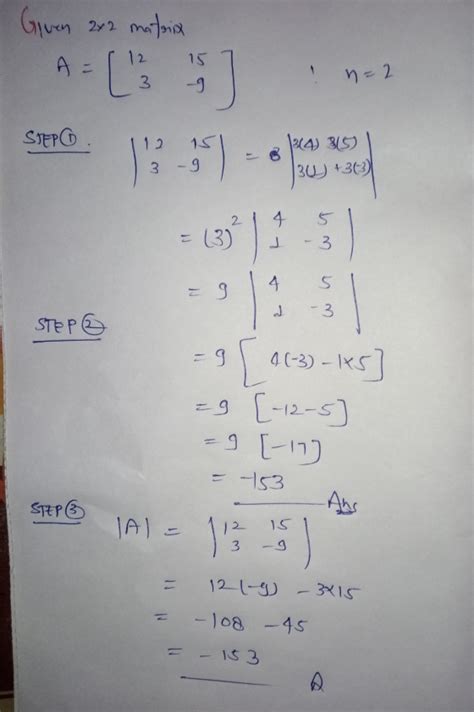 Given 2x2 matrix
A = [ 12 15
3 -9 ] ! n = 2
STEP① | 12 15
3 -9 | = | 3(4) 3(5)
3(1) +3(-3) |
= (3)² | 4 5
1 -3 |
= 9 | 4 5
1 -3 |
STEP②
= 9 [ 4(-3) - 1x5 ]
= 9 [-12-5]
= 9 [-17]
= -153
Ans
STEP③ |A| = | 12 15
3 -9 |
= 12(-9) - 3x15
= -108 - 45
= -153